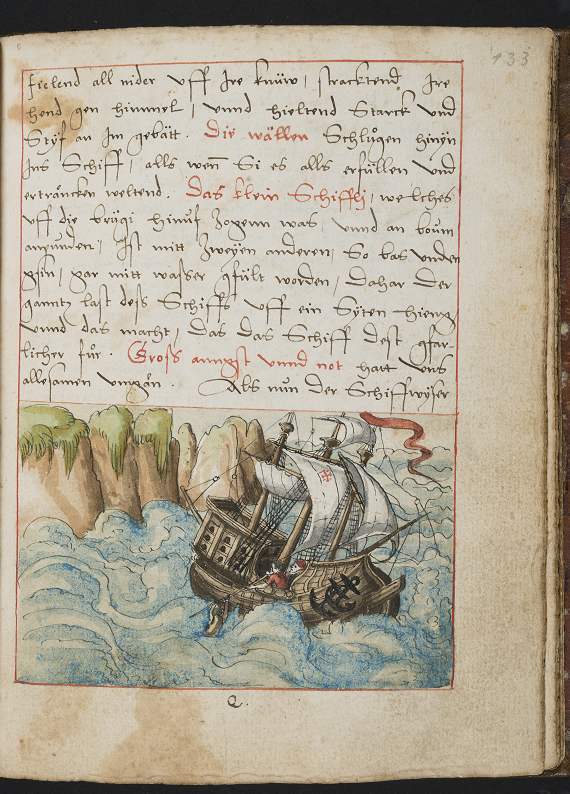 133
fielend all nider vff Ire knüw, stracktend Ire
hend gen himmel, vnnd hieltend Starck vnd
Styf an Im gebätt. Die wällen Schlůgen hinyn
Ins Schiff, alls wen̄ Si es alls erfüllen vnd
ertroͤncken weltend. Das klein Schiffly, welches
vff die brügi hinuf zogenn was, vnnd an boum
anpunden, Ist mitt zweyen anderen, So bas vnden
gsin, gar mitt wasser gfült worden, dahar der
gantz last dess Schiffs vff ein Syten hieng
vnnd das macht, das das Schiff dest gfar-
licher fůr. Gross anngst vnnd not hatt vns
allesamen vmgoͤn. Als nůn der Schiffwyser
Q.